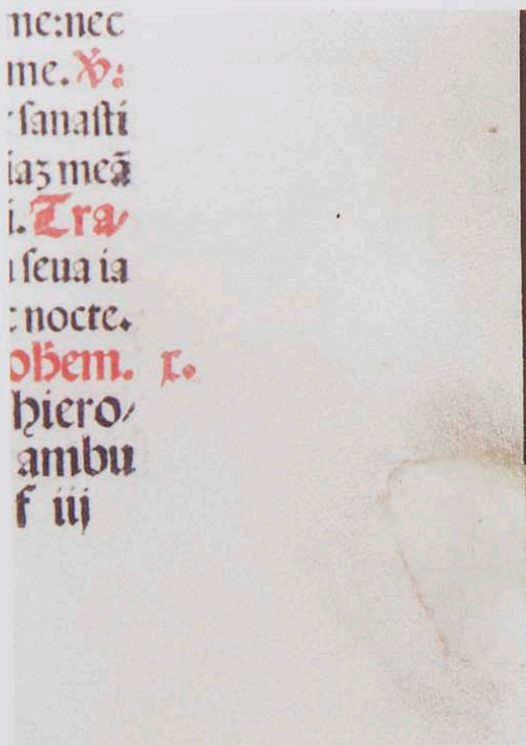 me:nec
me. ℣:
sanasti
iaʒ meā
i. Tra/
seua ia
nocte.
ohem. x.
hiero/
ambu
f iij